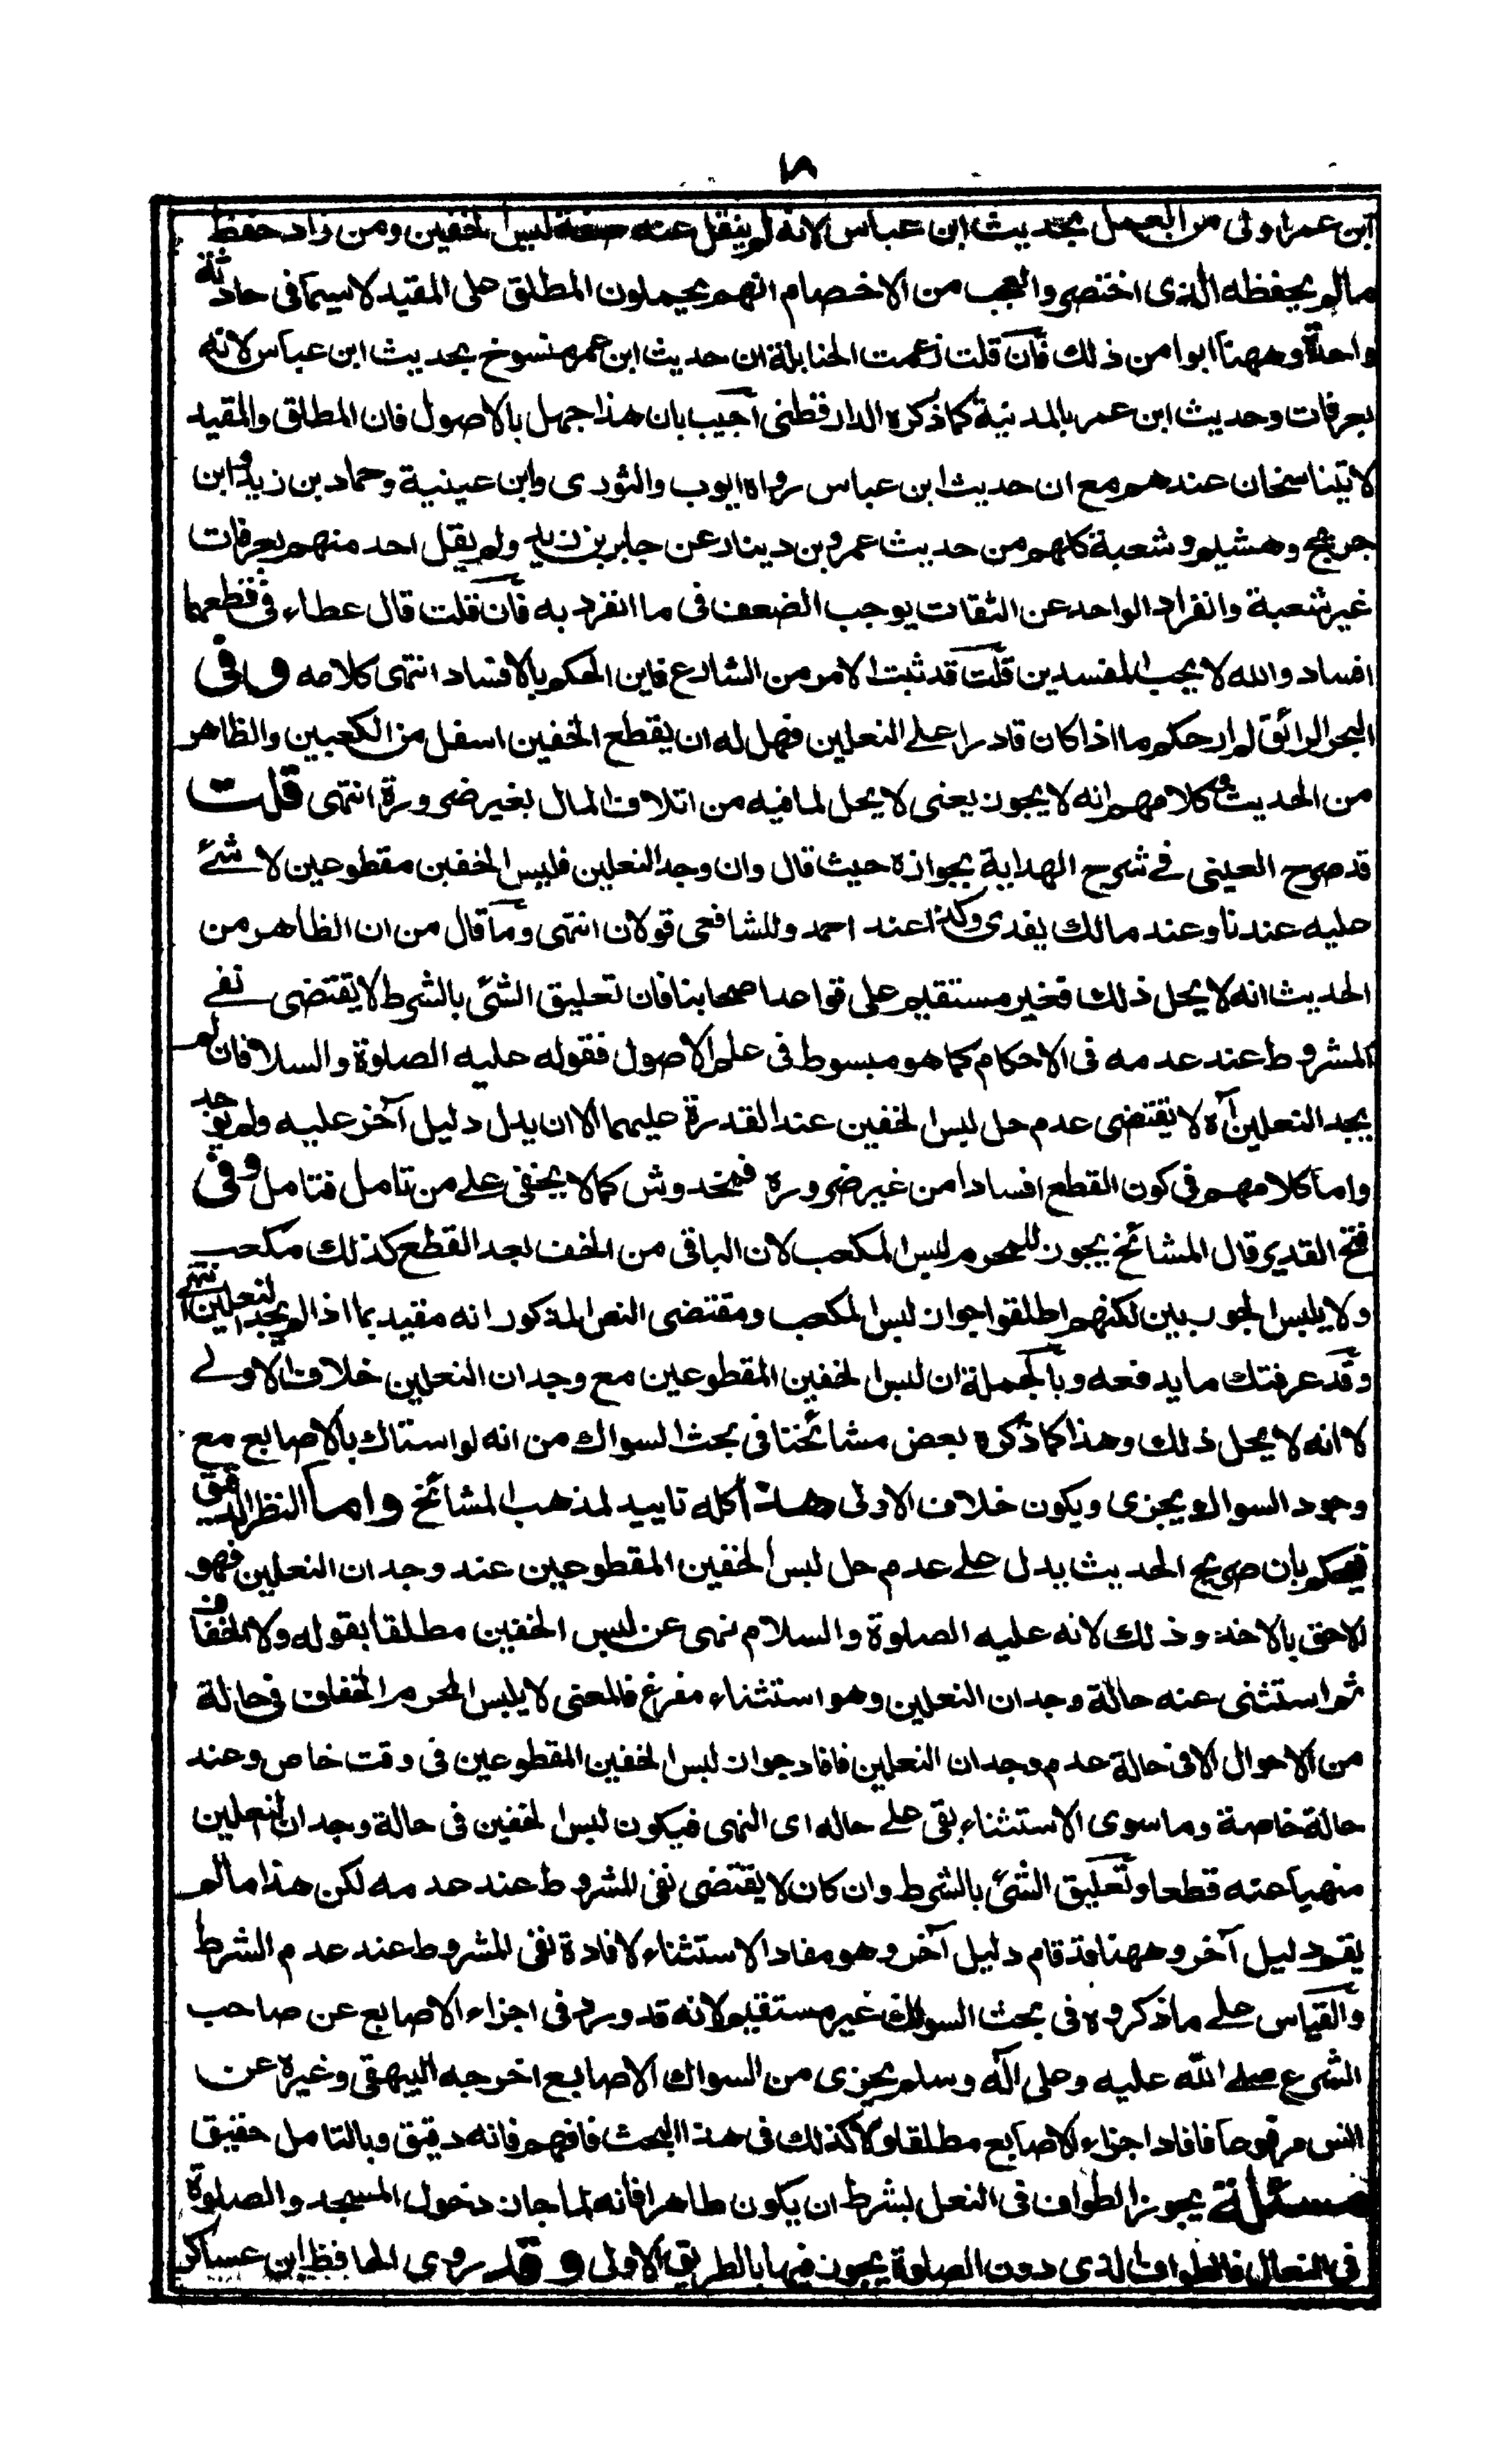 ١٨
ابن عمر اولى من العمل بحديث ابن عباس لانه لم ينقل عنه صفة لبس الخفين ومن زاد حفظ
مالم يحفظه الذى اختصر والعجب من الاخصام انهم يحملون المطلق على المقيد لاسيما فى حادثة
واحدة وههنا ابوا من ذلك فان قلت زعمت الحنابلة ان حديث ابن عمر منسوخ بحديث ابن عباس لانه
بعرفات وحديث ابن عمر بالمدينة كما ذكره الدارقطنى اجيب بان هذا جهل بالاصول فان المطلق والمقيد
لا يتناسخان عندهم مع ان حديث ابن عباس رواه ايوب والثورى وابن عيينية وحماد بن زيد وابن
جريج وهشيم وشعبة كلهم من حديث عمرو بن دينار عن جابر بن زيد ولم يقل احد منهم بعرفات
غير شعبة وانفراد الواحد عن الثقات يوجب الضعف فى ما انفرد به فان قلت قال عطاء فى قطعهما
افساد والله لا يحب المفسدين قلت قد ثبت الامر من الشارع فاين الحكم بالافساد انتهى كلامه وفى
البحر الرائق لم ار حكم ما اذا كان قادرا على النعلين فهل له ان يقطع الخفين اسفل من الكعبين والظاهر
من الحديث وكلامهم انه لا يجوز يعنى لا يحل لما فيه من اتلاف المال بغير ضرورة انتهى قلت
قد صرح العينى فى شرح الهداية بجوازه حيث قال وان وجد النعلين فلبس الخفين مقطوعين لا شئ
عليه عندنا وعند مالك يفدى وكذا عند احمد وللشافعى قولان انتهى وما قال من ان الظاهر من
الحديث انه لا يحل ذلك فغير مستقيم على قواعد اصحابنا فان تعليق الشئ بالشرط لا يقتضى نفى
المشروط عند عدمه فى الاحكام كما هو مبسوط فى علم الاصول فقوله عليه الصلوة والسلام فان لم
يجد النعلين آه لا يقتضى عدم حل لبس الخفين عند القدرة عليهما الا ان يدل دليل آخر عليه ولم يوجد
واما كلامهم فى كون القطع افسادا من غير ضرورة فمخدوش كما لا يخفى على من تامل فتامل وفى
فتح القدير قال المشائخ يجوز للمحرم لبس المكعب لان الباقى من الخف بعد القطع كذلك مكعب
ولا يلبس الجوربين لكنهم اطلقوا جواز لبس المكعب ومقتضى النص المذكور انه مقيد بما اذا لم يجد النعلين انتهى
وقد عرفتك ما يدفعه وبالجملة ان لبس الخفين المقطوعين مع وجدان النعلين خلاف الاولى
لا انه لا يحل ذلك وهذا كما ذكره بعض مشائخنا فى بحث السواك من انه لو استاك بالاصابع مع
وجود السواك يجزى ويكون خلاف الاولى هذا كله تاييد لمذهب المشائخ واما النظر الدقيق
فيحكم بان صريح الحديث يدل على عدم حل لبس الخفين المقطوعين عند وجدان النعلين فهو
الاحق بالاخذ وذلك لانه عليه الصلوة والسلام نهى عن لبس الخفين مطلقا بقوله ولا الخفاف
ثم استثنى عنه حالة وجدان النعلين وهو استثناء مفرغ فالمعنى لا يلبس المحرم الخفاف فى حالة
من الاحوال الا فى حالة عدم وجدان النعلين فافاد جواز لبس الخفين المقطوعين فى وقت خاص وعند
حالة خاصة وما سوى الاستثناء بقى على حاله اى النهى فيكون لبس الخفين فى حالة وجدان النعلين
منهيا عنه قطعا وتعليق الشئ بالشرط وان كان لا يقتضى نفى المشروط عند عدمه لكن هذا ما لم
يقم دليل آخر وههنا قد قام دليل آخر وهو مفاد الاستثناء لافادة نفى المشروط عند عدم الشرط
والقياس على ما ذكروه فى بحث السواك غير مستقيم لانه قد ورد فى اجزاء الاصابع عن صاحب
الشرع صلى الله عليه وعلى آله وسلم يجزى من السواك الاصابع اخرجه البيهقى وغيره عن
انس مرفوعا فافاد اجزاء الاصابع مطلقا ولا كذلك فى هذا البحث فافهم فانه دقيق وبالتامل حقيق
مسئلة يجوز الطواف فى النعل بشرط ان يكون طاهرا فانه لما جاز دخول المسجد والصلوة
فى النعال فالطواف الذى دون الصلوة يجوز فيها بالطريق الاولى وقد روى الحافظ ابن عساكر